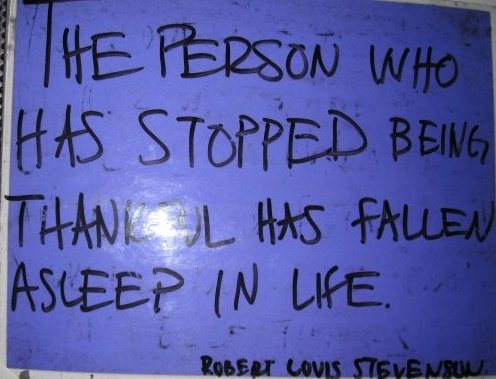 THE PERSON WHO
HAS STOPPED BEING
THANKFUL HAS FALLEN
ASLEEP IN LIFE.
ROBERT LOUIS STEVENSON